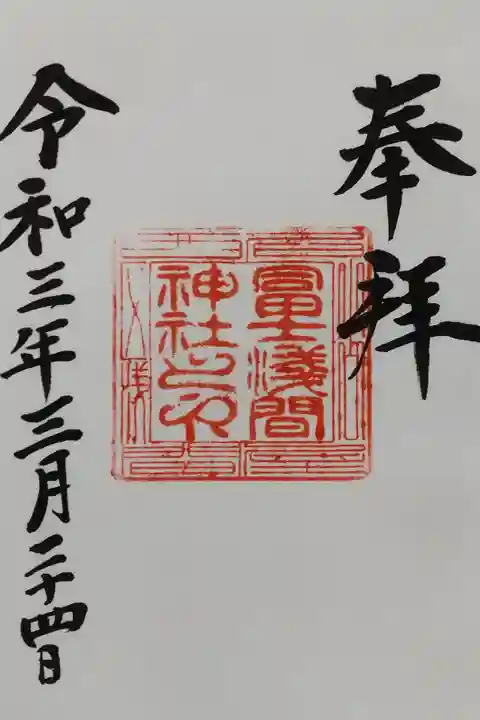 奉拜
冨士淺間
神社之印
令和三年三月二十四日